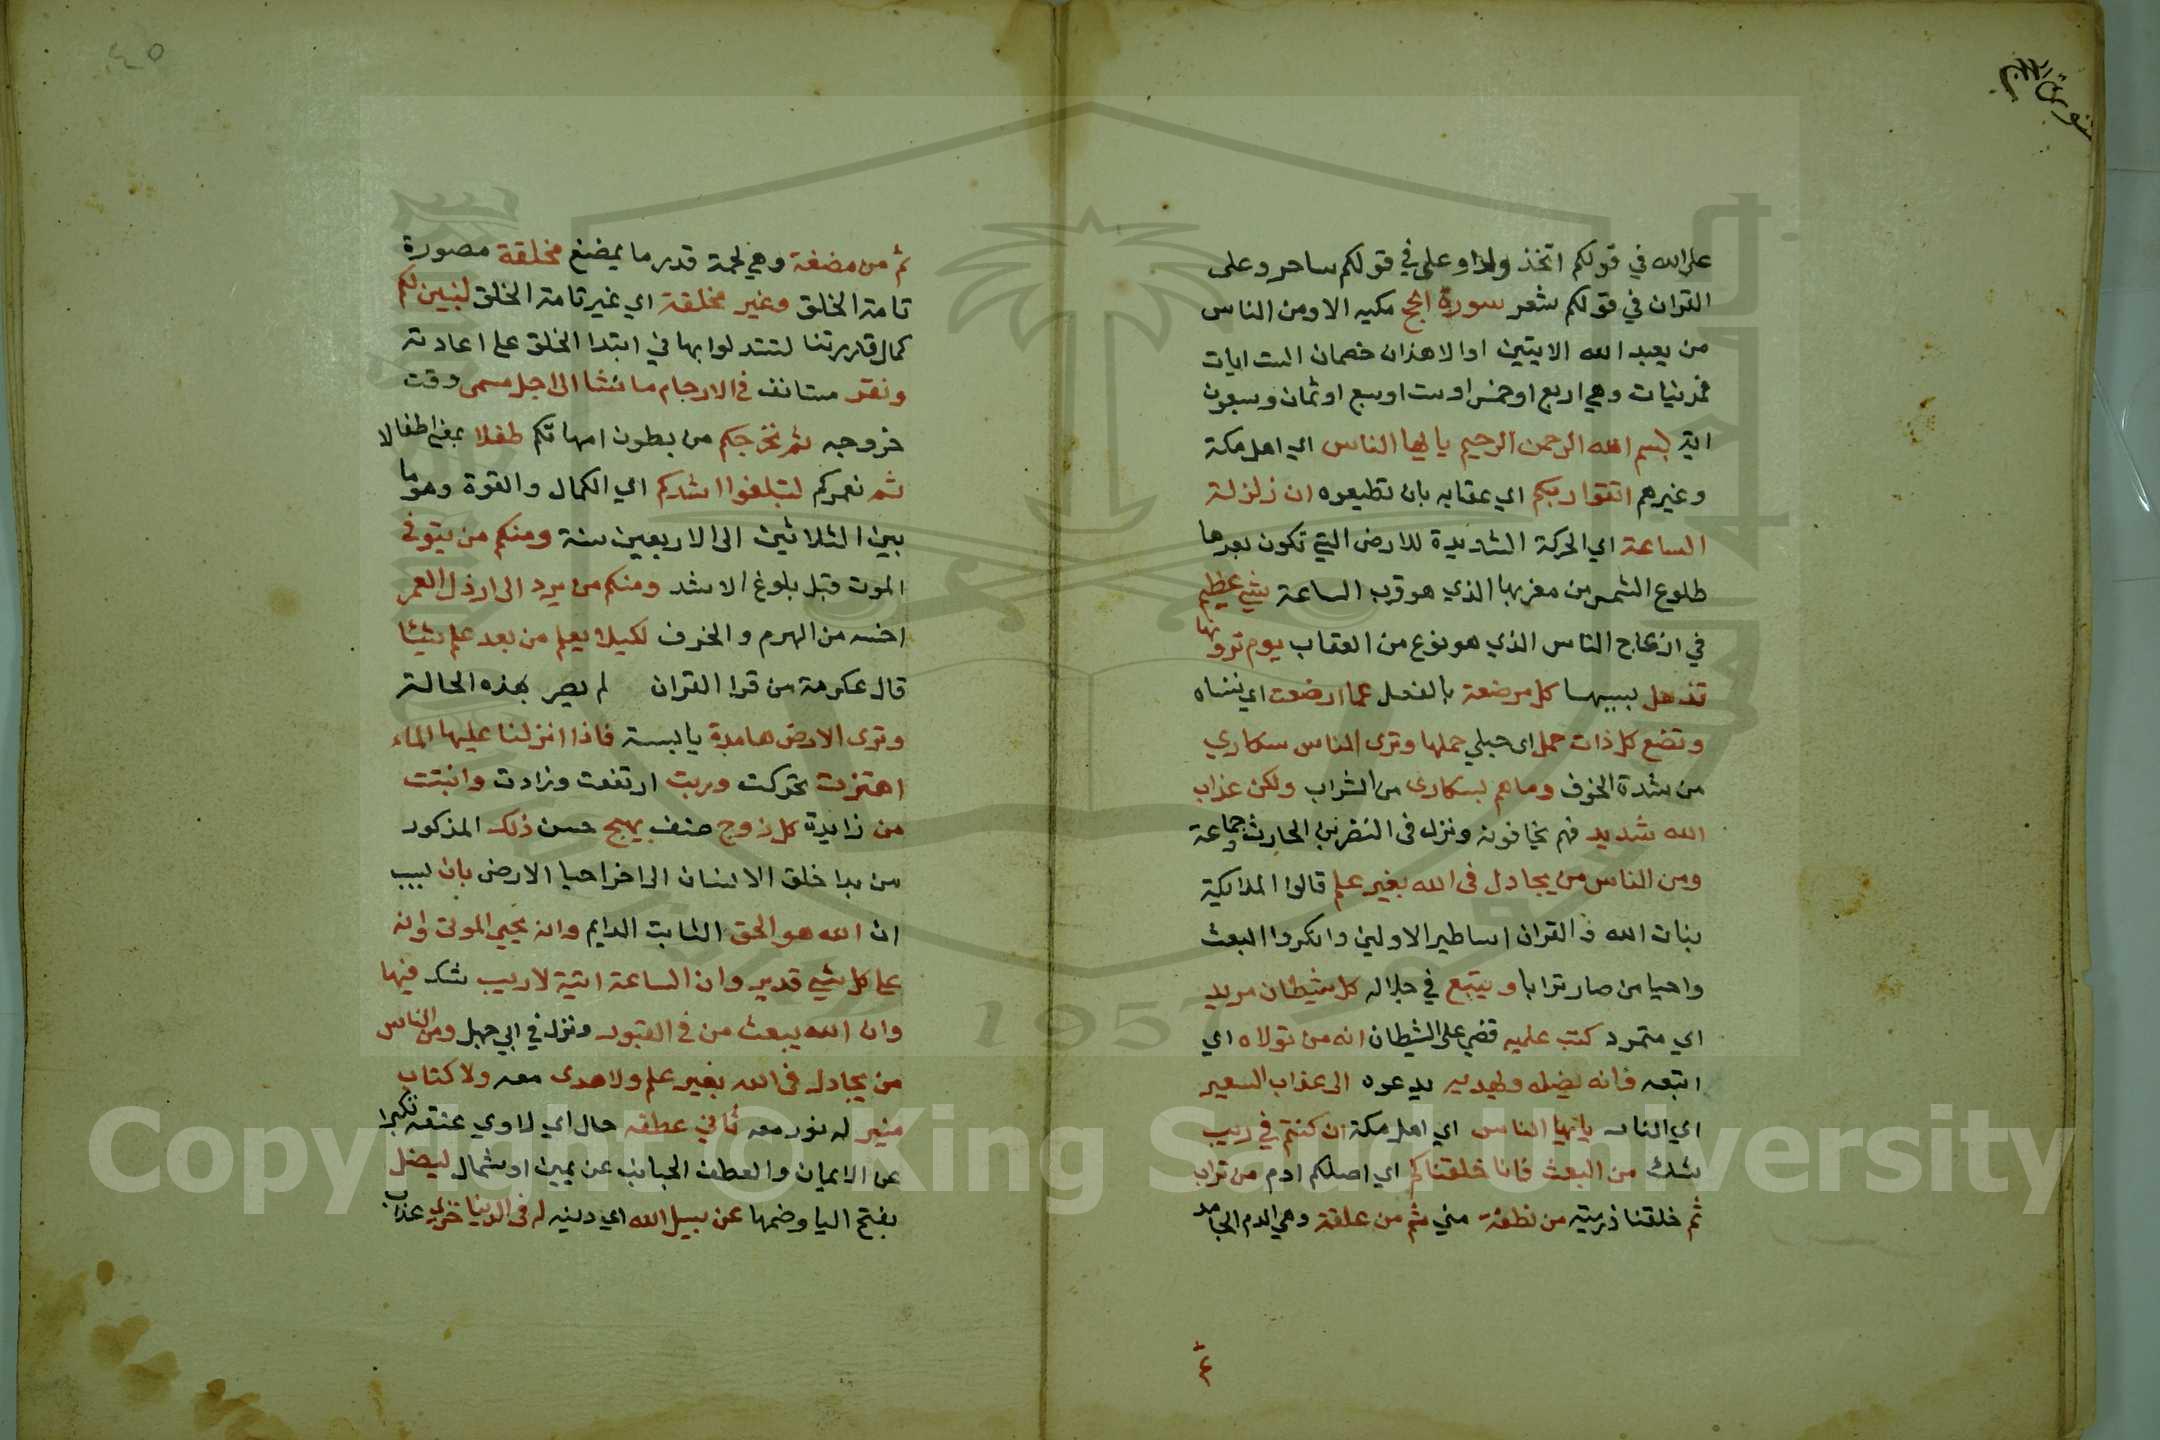 سورة الحج
على الله في قولكم اتخذ ولدا وعلي في قولكم ساحر وعلى
القران في قولكم شعر سورة الحج مكيه الا ومن الناس
من يعبد الله الايتين اوالا هذان خصمان الست ايات
فمدنيات وهي اربع اوخمس اوست اوسبع اوثمان وسبعون
اية بسم الله الرحمن الرحيم يايها الناس اي اهل مكة
وغيرهم اتقوا ربكم اي عقابه بان تطيعوه ان زلزلة
الساعة اي الحركة الشديدة للارض التي تكون بعدها
طلوع الشمس من مغربها الذي هو قرب الساعة شيء عظيم
في ازعاج الناس الذي هو نوع من العقاب يوم ترونها
تذهل بسببها كل مرضعة بالفعل عما ارضعت اي تنساه
وتضع كل ذات حمل اي حبلي حملها وترى الناس سكاري
من شدة الخوف وما هم بسكارى من الشراب ولكن عذاب
الله شديد فهم يخافونه ونزل فى النضر بن الحارث وجماعة
ومن الناس من يجادل فى الله بغير علم قالوا الملائكية
بنات الله والقران اساطير الاولين وانكروا البعث
واحيا من صار ترابا ويتبع في جداله كل شيطان مريد
اي متمرد كتب عليه قضي على الشيطان انه من تولاه اي
اتبعه فانه يضله ويهديه يدعوه الى عذاب السعير
اي النار يايها الناس اي اهل مكة ان كنتم في ريب
شك من البعث فانا خلقناكم اي اصلكم ادم من تراب
ثم خلقنا ذريته من نطفة مني ثم من علقة وهي الدم الجامد
٤٥
ثم من مضغة وهي لحمة قدر ما يمضغ مخلقة مصورة
تامة الخلق وغير مخلقة اي غير تامة الخلق لنبين لكم
كمال قدرتنا لتستدلوا بها في ابتدا الخلق على اعادته
ونقر مستانف في الارحام ما نشا الى اجل مسمى وقت
خروجه ثم نخرجكم من بطون امهاتكم طفلا بمعنى اطفالا
ثم نعمركم لتبلغوا اشدكم اي الكمال والقوة وهو ما
بين الثلاثين الى الاربعين سنة ومنكم من يتوفى
الموت قبل بلوغ الاشد ومنكم من يرد الى ارذل العمر
اخسه من الهرم والخرف لكيلا يعلم من بعد علم شيئا
قال عكرمة من قرا القران لم يصر بهذه الحالة
وترى الارض هامدة يابسة فاذا انزلنا عليها الماء
اهتزت تحركت وربت ارتفعت وزادت وانبتت
من زايدة كل زوج صنف بهيج حسن ذلك المذكور
من بدا خلق الانسان الى اخر احيا الارض بان بسبب
ان الله هو الحق الثابت الدايم وانه يحيى الموتى وانه
على كل شيء قدير وان الساعة اتية لا ريب شك فيها
وان الله يبعث من في القبور ونزل في ابي جهل ومن الناس
من يجادل فى الله بغير علم ولا هدى معه ولا كتاب
منير له نور معه ثاني عطفه حال اي لاوي عنقه تكبرا
عن الايمان والعطف الجانب عن يمين اوشمال ليضل
بفتح اليا وضمها عن سبيل الله اي دينه له فى الدنيا خزي عذاب
1957
Copyright © King Saud University